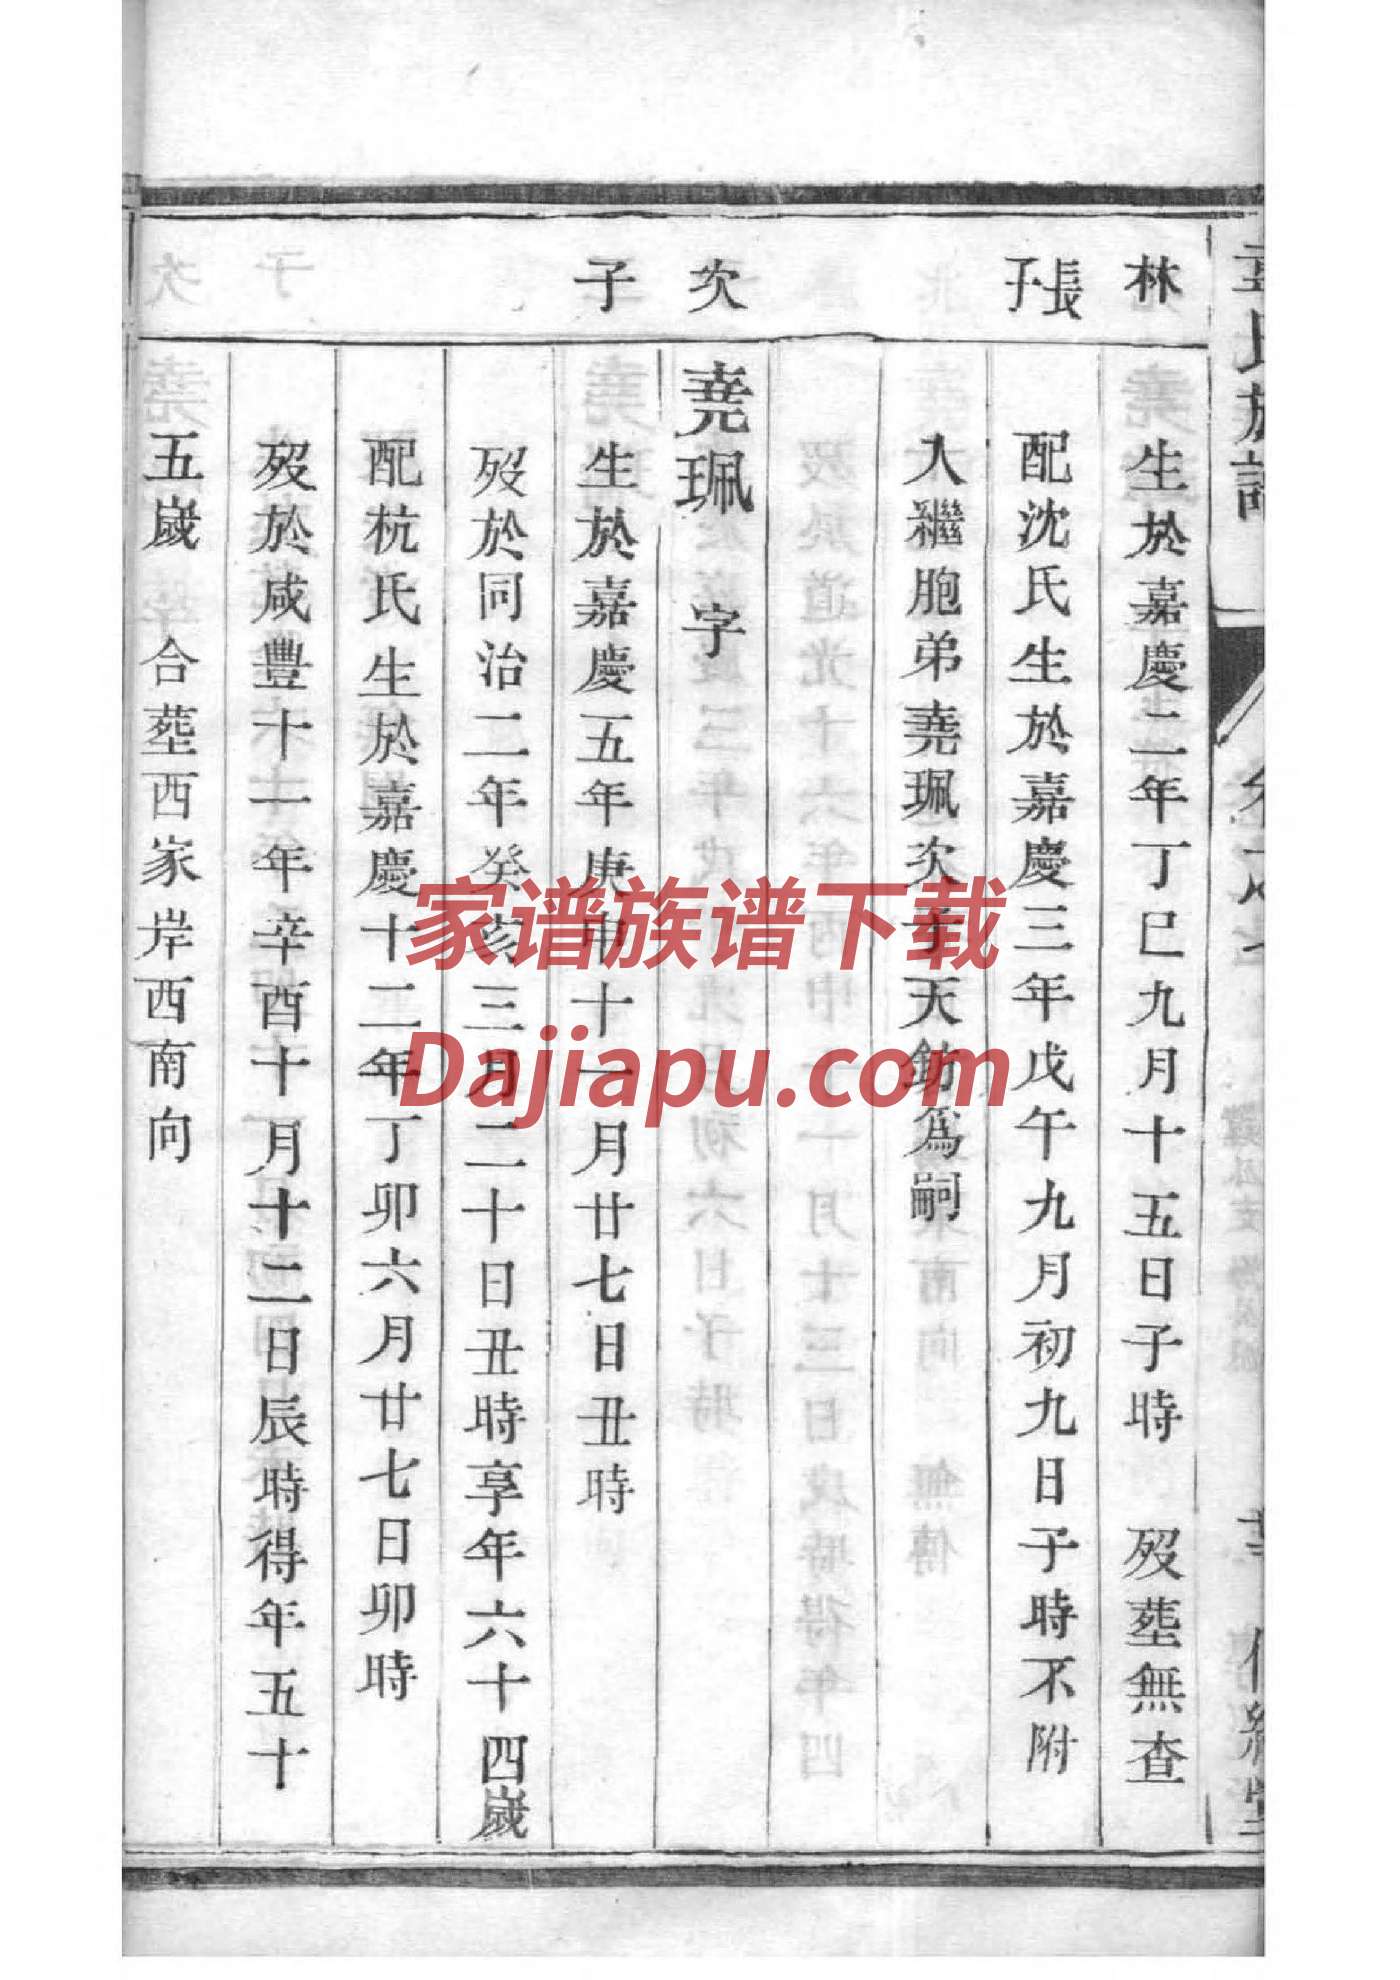 林
生於嘉慶二年丁巳九月十五日子時　歿塟無查
張子
配沈氏生於嘉慶三年戊午九月初九日子時不附
入繼胞弟堯珮次子天鈁爲嗣
次
堯珮　字
子
生於嘉慶五年庚申十一月廿七日丑時
歿於同治二年癸亥三月二十日丑時享年六十四歲
配杭氏生於嘉慶十二年丁卯六月廿七日卯時
歿於咸豐十一年辛酉十月十二日辰時得年五十
五歲　合塟西家岸西南向
家谱族谱下载
Dajiapu.com